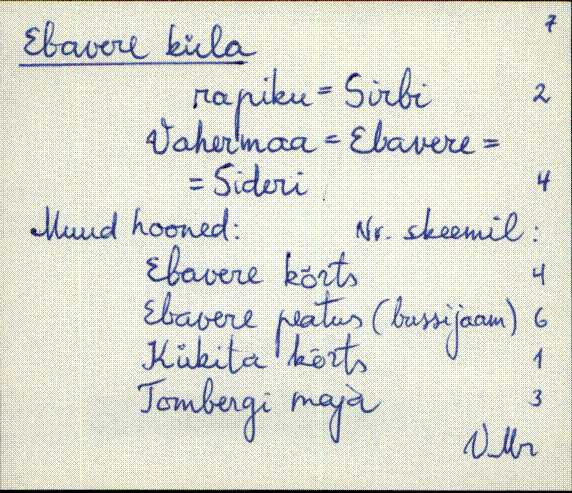 7
Ebavere küla
rapiku = Sirbi 2
Vahermaa = Ebavere =
= Sideri 4
Muud hooned: Nr. skeemil:
Ebavere kõrts 4
Ebavere peatus (bussijaam) 6
Kükita kõrts 1
Tombergi maja 3
VMr